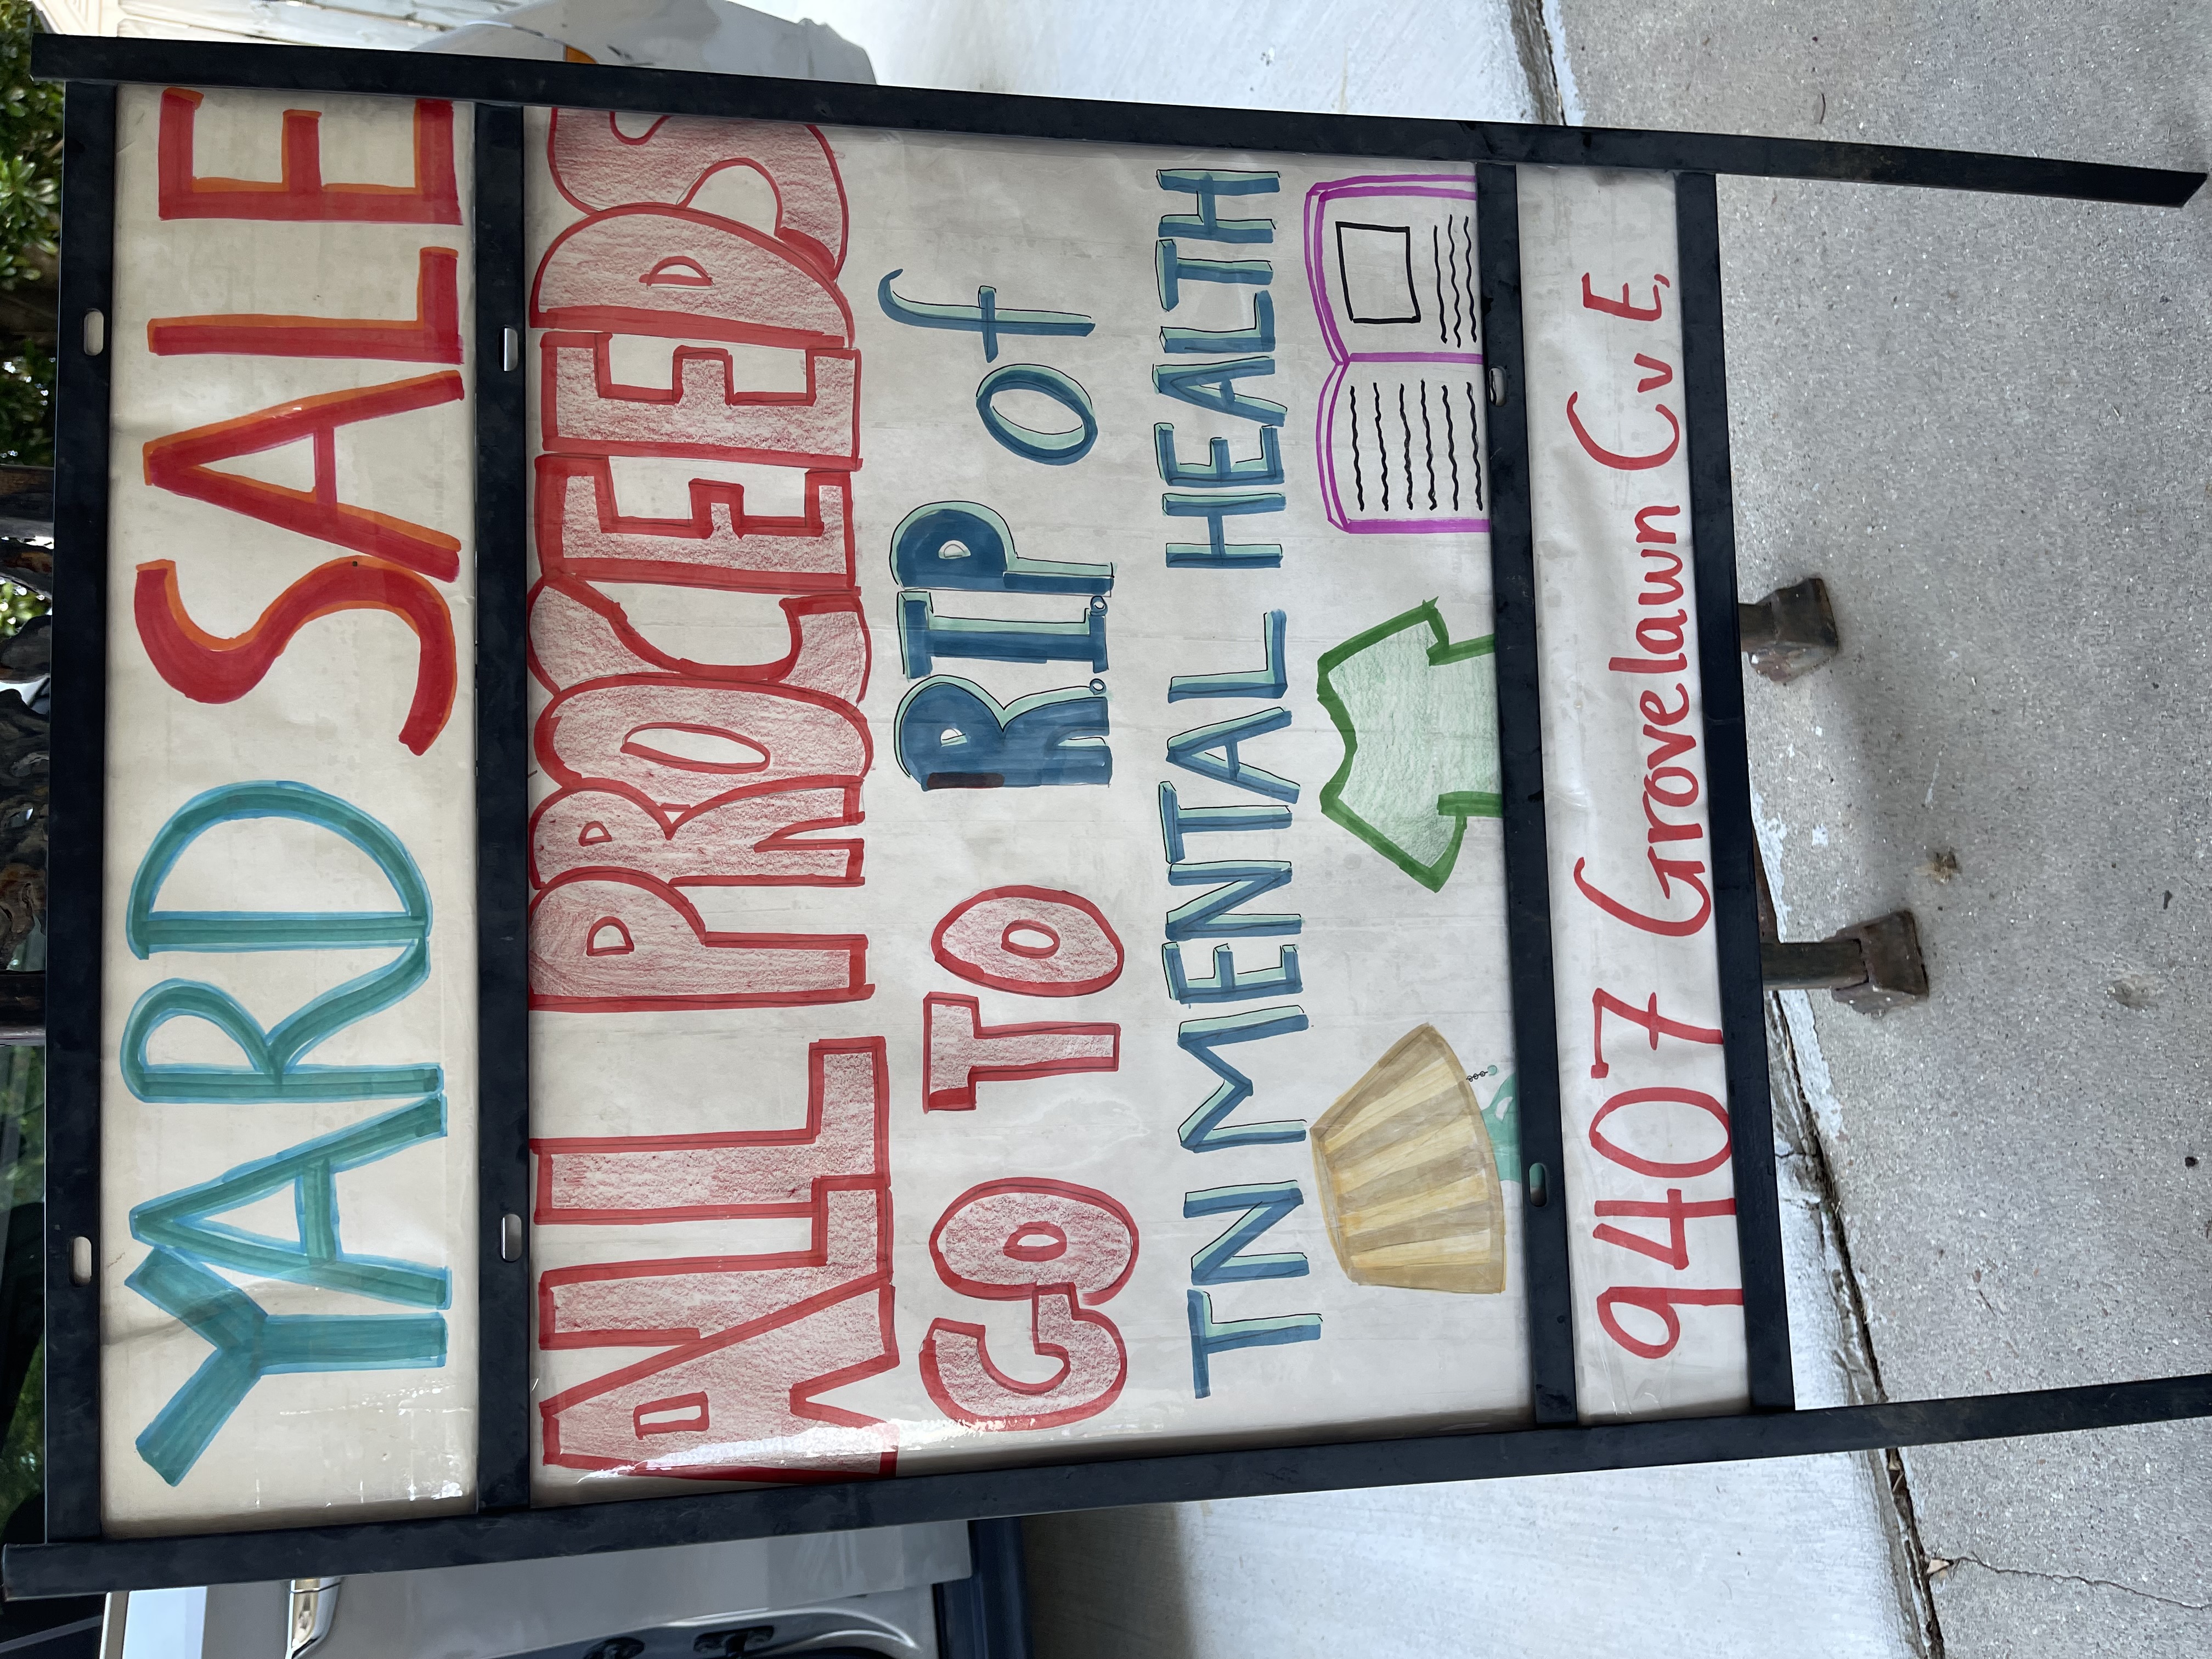 YARD SALE
ALL PROCEEDS
GO TO R.I.P of
TN MENTAL HEALTH
9407 Grovelawn Cv E,